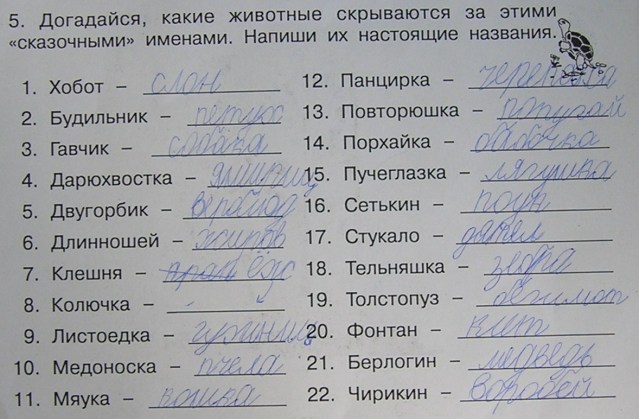 5. Догадайся, какие животные скрываются за этими
«сказочными» именами. Напиши их настоящие названия.
1. Хобот – слон
2. Будильник – петух
3. Гавчик – собака
4. Дарюхвостка –
5. Двугорбик –
6. Длинношей – жираф
7. Клешня – ёж
8. Колючка –
9. Листоедка – гусиниц
10. Медоноска – пчела
11. Мяука – кошка
12. Панцирка – черепаха
13. Повторюшка – попугай
14. Порхайка – бабочка
15. Пучеглазка – лягушка
16. Сетькин – поук
17. Стукало – дятел
18. Тельняшка – зебра
19. Толстопуз – бегимот
20. Фонтан – кит
21. Берлогин – медведь
22. Чирикин – воробей